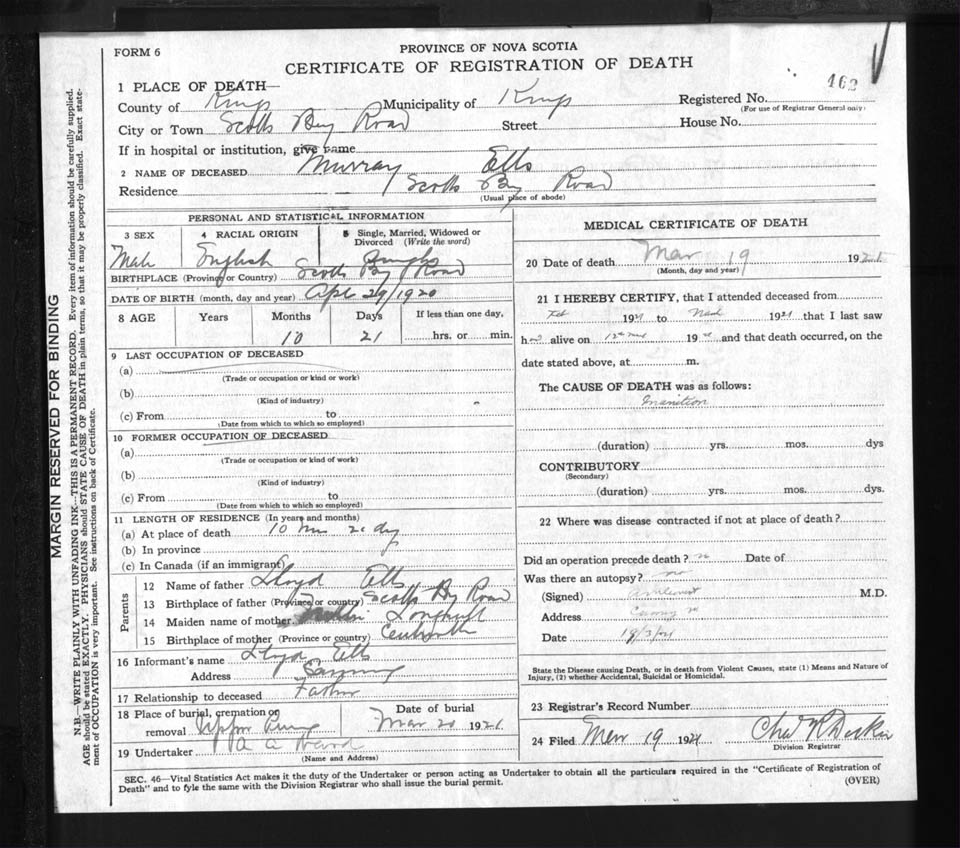 FORM 6
PROVINCE OF NOVA SCOTIA
CERTIFICATE OF REGISTRATION OF DEATH
162
1 PLACE OF DEATH—
County of Kings Municipality of Kings Registered No.
(For use of Registrar General only)
City or Town Scotts Bay Road Street House No.
If in hospital or institution, give name
2 NAME OF DECEASED Murray Ells
Residence Scotts Bay Road
(Usual place of abode)
PERSONAL AND STATISTICAL INFORMATION
3 SEX 4 RACIAL ORIGIN 5 Single, Married, Widowed or Divorced (Write the word)
Male English Single
BIRTHPLACE (Province or Country) Scotts Bay Road
DATE OF BIRTH (month, day and year) Apl 29/1920
8 AGE Years Months Days If less than one day,
10 21 hrs. or min.
9 LAST OCCUPATION OF DECEASED
(a)
(Trade or occupation or kind or work)
(b)
(Kind of industry)
(c) From to
(Date from which to which so employed)
10 FORMER OCCUPATION OF DECEASED
(a)
(Trade or occupation or kind of work)
(b)
(Kind of industry)
(c) From to
(Date from which to which so employed)
11 LENGTH OF RESIDENCE (In years and months)
(a) At place of death 10 mos 20 dy
(b) In province
(c) In Canada (if an immigrant)
Parents
12 Name of father Lloyd Ells
13 Birthplace of father (Province or country) Scotts Bay Road
14 Maiden name of mother
15 Birthplace of mother (Province or country)
16 Informant's name Lloyd Ells
Address
17 Relationship to deceased Father
18 Place of burial, cremation or removal Upper Date of burial Mar 20 1921
19 Undertaker
(Name and Address)
MEDICAL CERTIFICATE OF DEATH
20 Date of death Mar 19 1921
(Month, day and year)
21 I HEREBY CERTIFY, that I attended deceased from
Feb 1921 to 1921 that I last saw
h alive on 19 and that death occurred, on the
date stated above, at m.
The CAUSE OF DEATH was as follows:
Inanition
(duration) yrs. mos. dys
CONTRIBUTORY
(Secondary)
(duration) yrs. mos. dys.
22 Where was disease contracted if not at place of death?
Did an operation precede death? no Date of
Was there an autopsy? no
(Signed) M.D.
Address
Date 19/3/21
State the Disease causing Death, or in death from Violent Causes, state (1) Means and Nature of
Injury, (2) whether Accidental, Suicidal or Homicidal.
23 Registrar's Record Number
24 Filed Mar 19 1921
Division Registrar
SEC. 46—Vital Statistics Act makes it the duty of the Undertaker or person acting as Undertaker to obtain all the particulars required in the "Certificate of Registration of
Death" and to fyle the same with the Division Registrar who shall issue the burial permit.
(OVER)
MARGIN RESERVED FOR BINDING
N.B.—WRITE PLAINLY WITH UNFADING INK—THIS IS A PERMANENT RECORD. Every item of information should be carefully supplied.
AGE should be stated EXACTLY. PHYSICIANS should STATE CAUSE OF DEATH in plain terms, so that it may be properly classified. Exact state-
ment of OCCUPATION is very important. See instructions on back of Certificate.